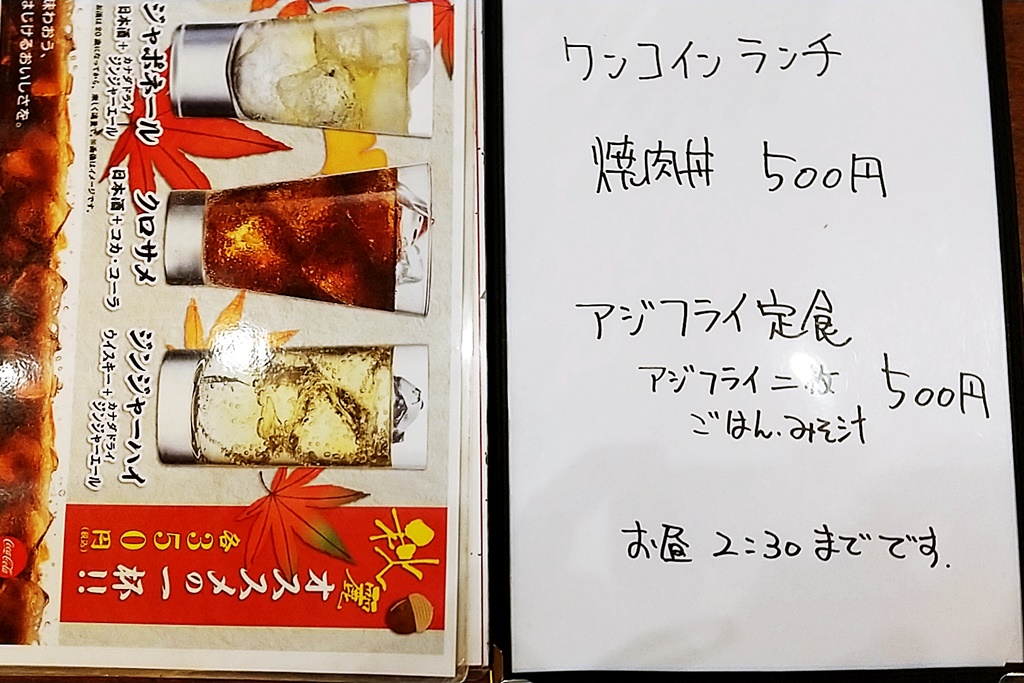 味わおう、
はじけるおいしさを。
ジャポネール
日本酒+カナダドライ
ジンジャーエール
お酒は20歳になってから。楽しく適量で。※画像はイメージです。
クロサメ
日本酒+コカ・コーラ
ジンジャーハイ
ウイスキー+カナダドライ
ジンジャーエール
秋
オススメの一杯!!
各350円
(税込)
Coca-Cola
ワンコインランチ
焼肉丼 500円
アジフライ定食
アジフライ二枚 500円
ごはん、みそ汁
お昼 2:30までです.